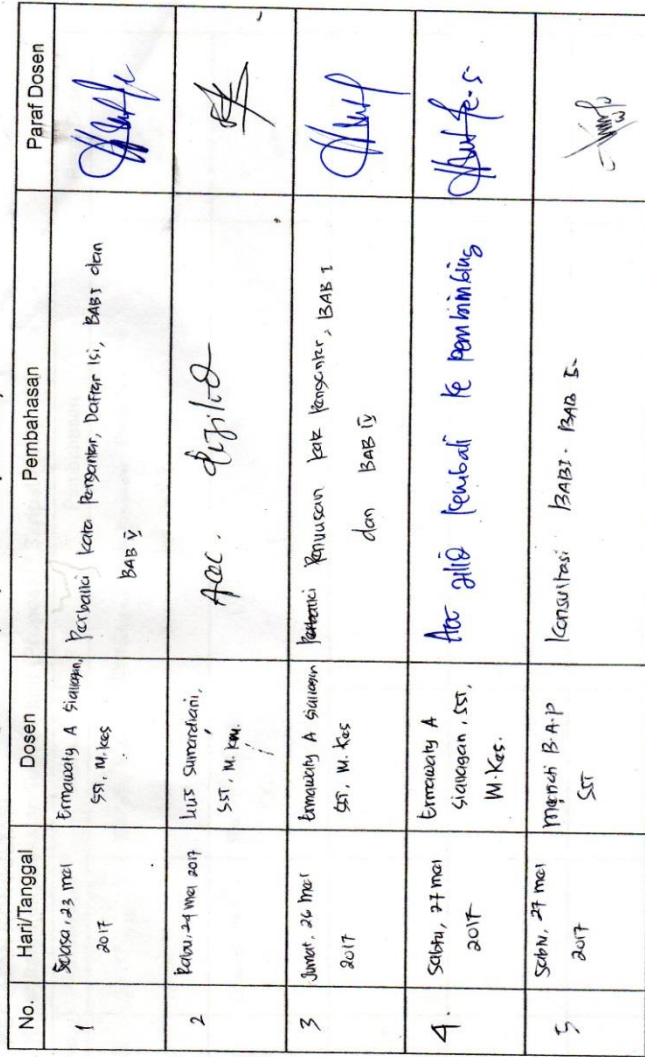 No. Hari/Tanggal Dosen Pembahasan Paraf Dosen
1 Selasa, 23 mei 2017 Ermawaty A Siallagan, SST, M.Kes Perbaiki kata Pengantar, Daftar Isi, BAB I dan BAB IV
2 Rabu, 24 mei 2017 Sumardiani, SST, M.KM. Acc. dijilid
3 Jumat, 26 mei 2017 Ermawaty A Siallagan SST, M.Kes Perbaiki Penyusan kata Pengantar, BAB I dan BAB IV
4. Sabtu, 27 mei 2017 Ermawaty A Siallagan, SST, M.Kes. Acc jilid kembali ke pembimbing
5 Sabtu, 27 mei 2017 B.A.P SST Konsultasi BAB I - BAB 5.